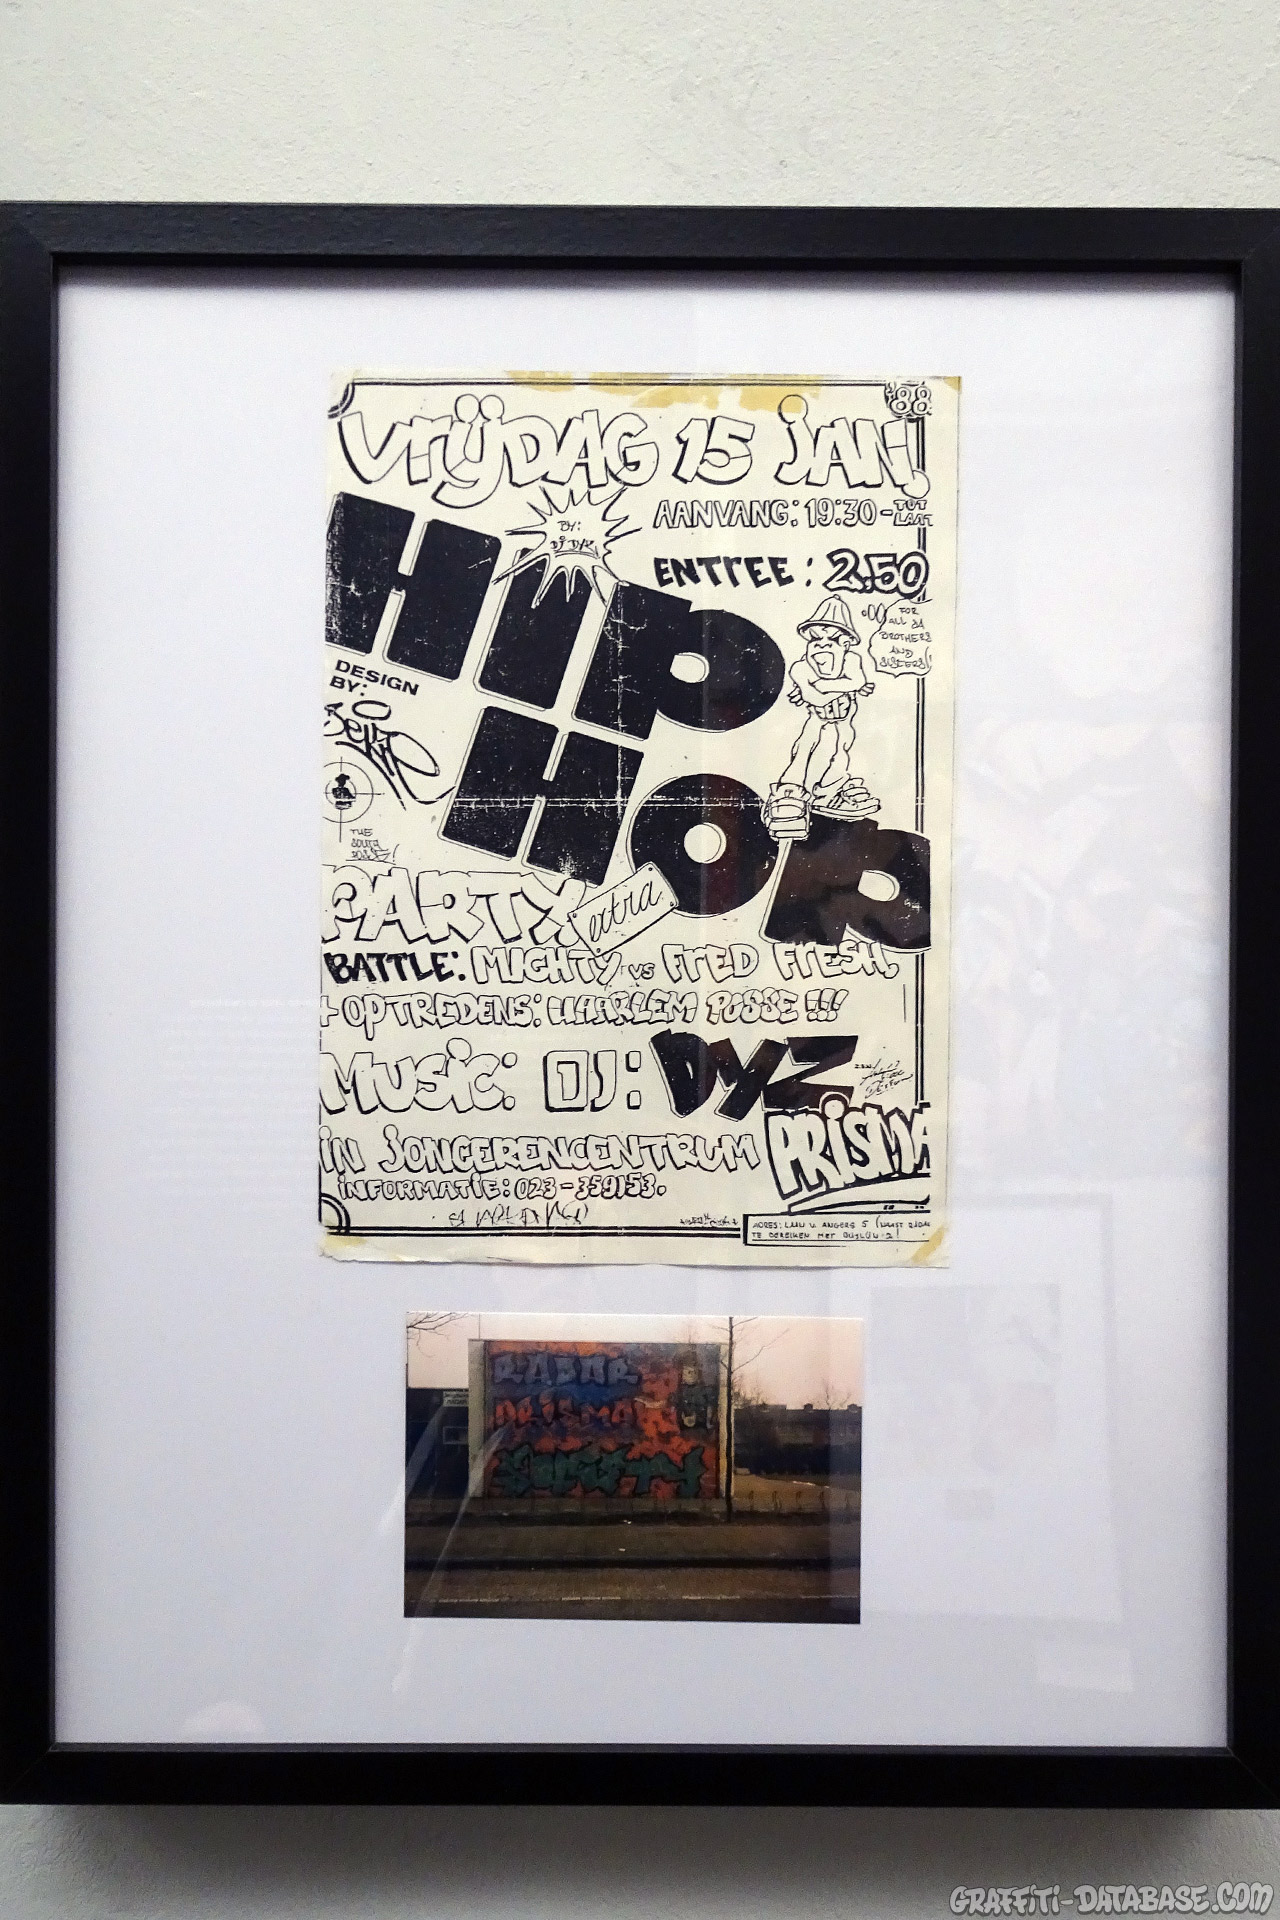 '88
VRIJDAG 15 JAN!
AANVANG: 19:30 - TOT LAAT
BY: DJ DYZ
ENTREE: 2.50
HIP
FOR ALL DA BROTHERS AND SISTERS!
DESIGN BY:
HOP
THE
PARTY extra
BATTLE: MIGHTY VS FRED FRESH
+ OPTREDENS: HAARLEM POSSE !!!
MUSIC: DJ: DYZ
IN JONGERENCENTRUM PRISMA
INFORMATIE: 023-359153.
ADRES: LAAN V. ANGERS 5 (NAAST RADAR
TE BEREIKEN MET BUSLIJN 2!
RADAR
PRISMA
GRAFFITI-DATABASE.COM